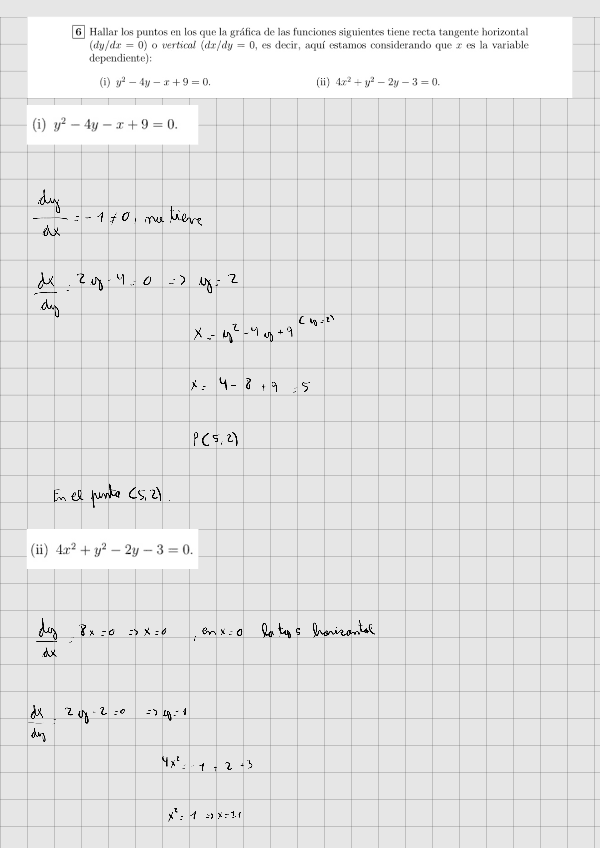 6 Hallar los puntos en los que la gráfica de las funciones siguientes tiene recta tangente horizontal
(dy/dx = 0) o vertical (dx/dy = 0, es decir, aquí estamos considerando que x es la variable
dependiente):
(i) y² − 4y − x + 9 = 0. (ii) 4x² + y² − 2y − 3 = 0.
(i) y² − 4y − x + 9 = 0.
dy/dx = -1 ≠ 0, no tiene
dx/dy = 2y - 4 = 0 => y = 2
x = y² - 4y + 9 (y=2)
x = 4 - 8 + 9 = 5
P(5,2)
En el punto (5,2).
(ii) 4x² + y² − 2y − 3 = 0.
dy/dx = 8x = 0 => x = 0, en x = 0 la tg s horizontal
dx/dy = 2y - 2 = 0 => y = 1
4x² = -1 + 2 + 3
x² = 1 => x = ±1